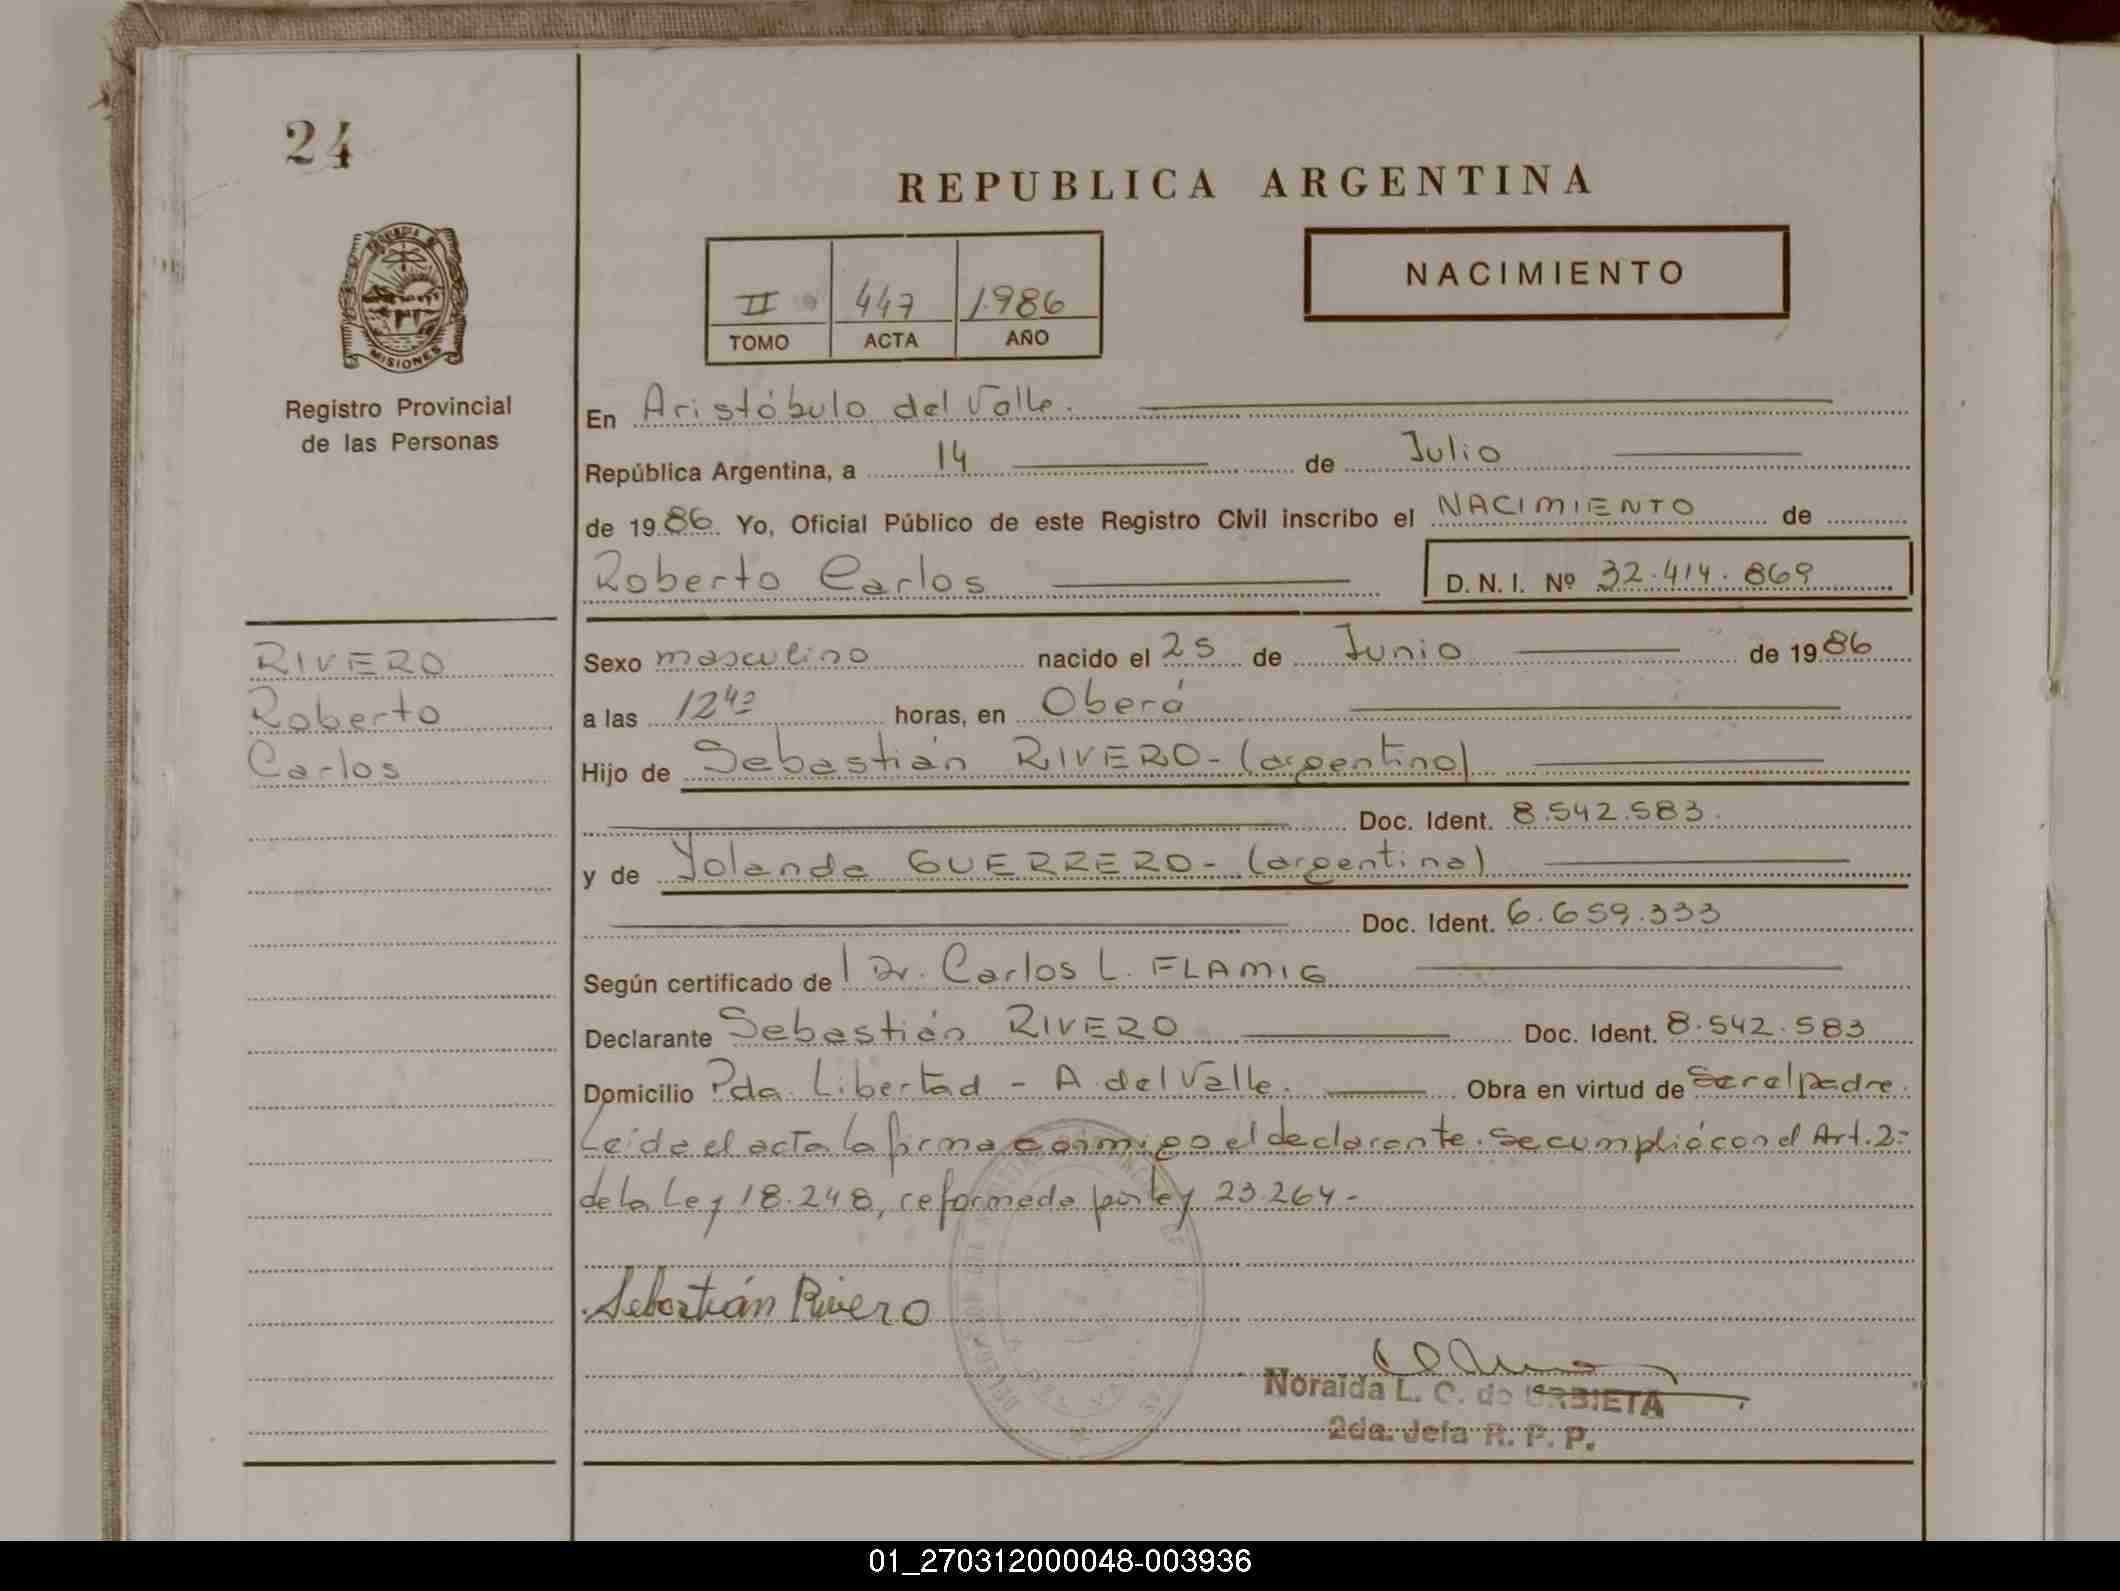 24
REPUBLICA ARGENTINA
NACIMIENTO
II 447 1.986
TOMO ACTA AÑO
MISIONES
Registro Provincial
de las Personas
En Aristóbulo del Valle.
República Argentina, a 14 de Julio
de 1986. Yo, Oficial Público de este Registro Civil inscribo el NACIMIENTO de
Roberto Carlos D. N. I. Nº 32.414.869
RIVERO
Roberto
Carlos
Sexo masculino nacido el 25 de Junio de 1986
a las 12 horas, en Oberá
Hijo de Sebastián RIVERO- (argentino)
Doc. Ident. 8.542.583.
y de Yolanda GUERRERO- (argentina)
Doc. Ident. 6.659.333
Según certificado de Dr. Carlos L. FLAMIG
Declarante Sebastián RIVERO Doc. Ident. 8.542.583
Domicilio Pda. Libertad - A. del Valle. Obra en virtud de ser el padre.
Leída el acta la firma conmigo el declarante. Se cumplió con el Art. 2-
de la Ley 18.248, reformada por ley 23.264-
Sebastián Rivero
Noraida L. C. de URBIETA
2da. Jefa R. P. P.
01_270312000048-003936